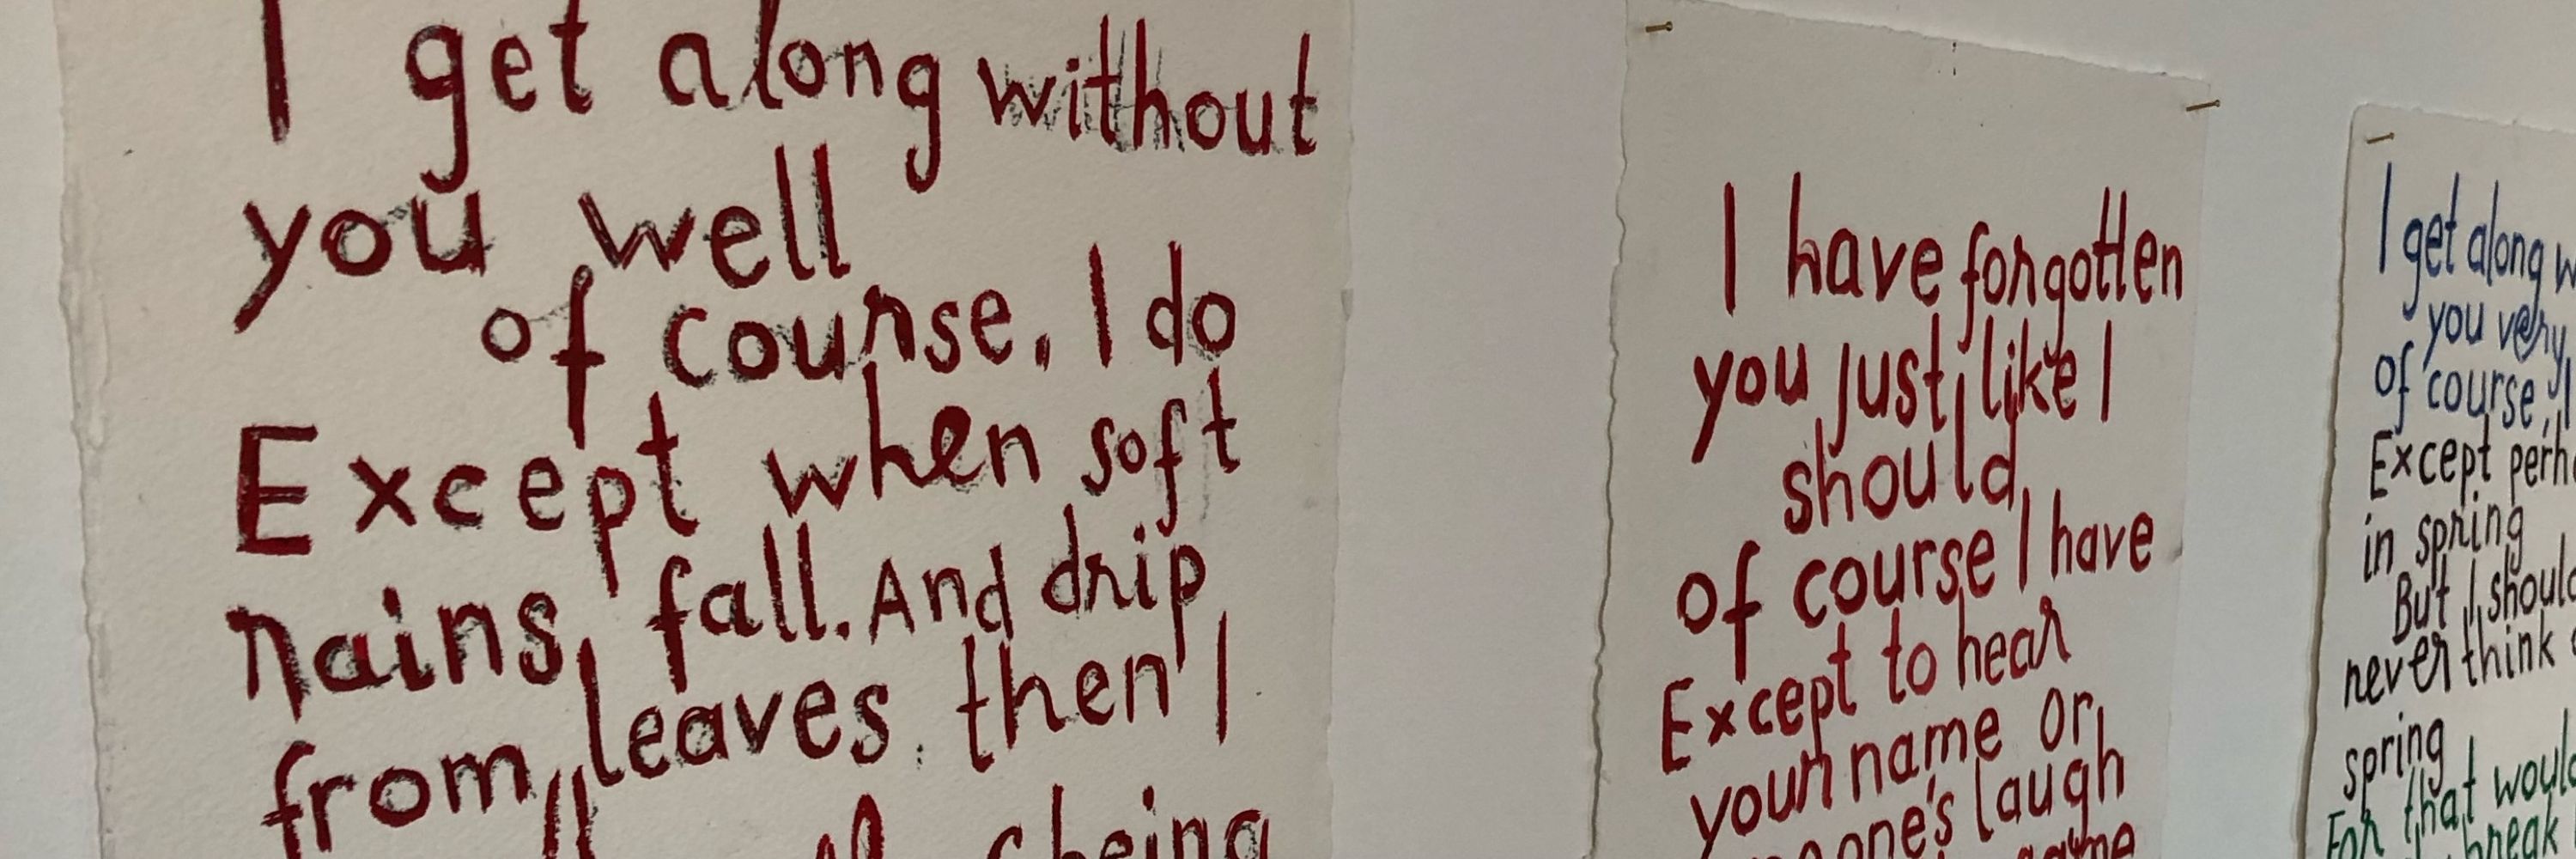 I get along without
you well
of course, I do
Except when soft
rains, fall. And drip
from leaves, then I
being
I have forgotten
you just, like I
should,
of course I have
Except to hear
your name or
one's laugh
same
I get along
you very
of course,
Except
in spring
But I should
never think
spring
For that would
break